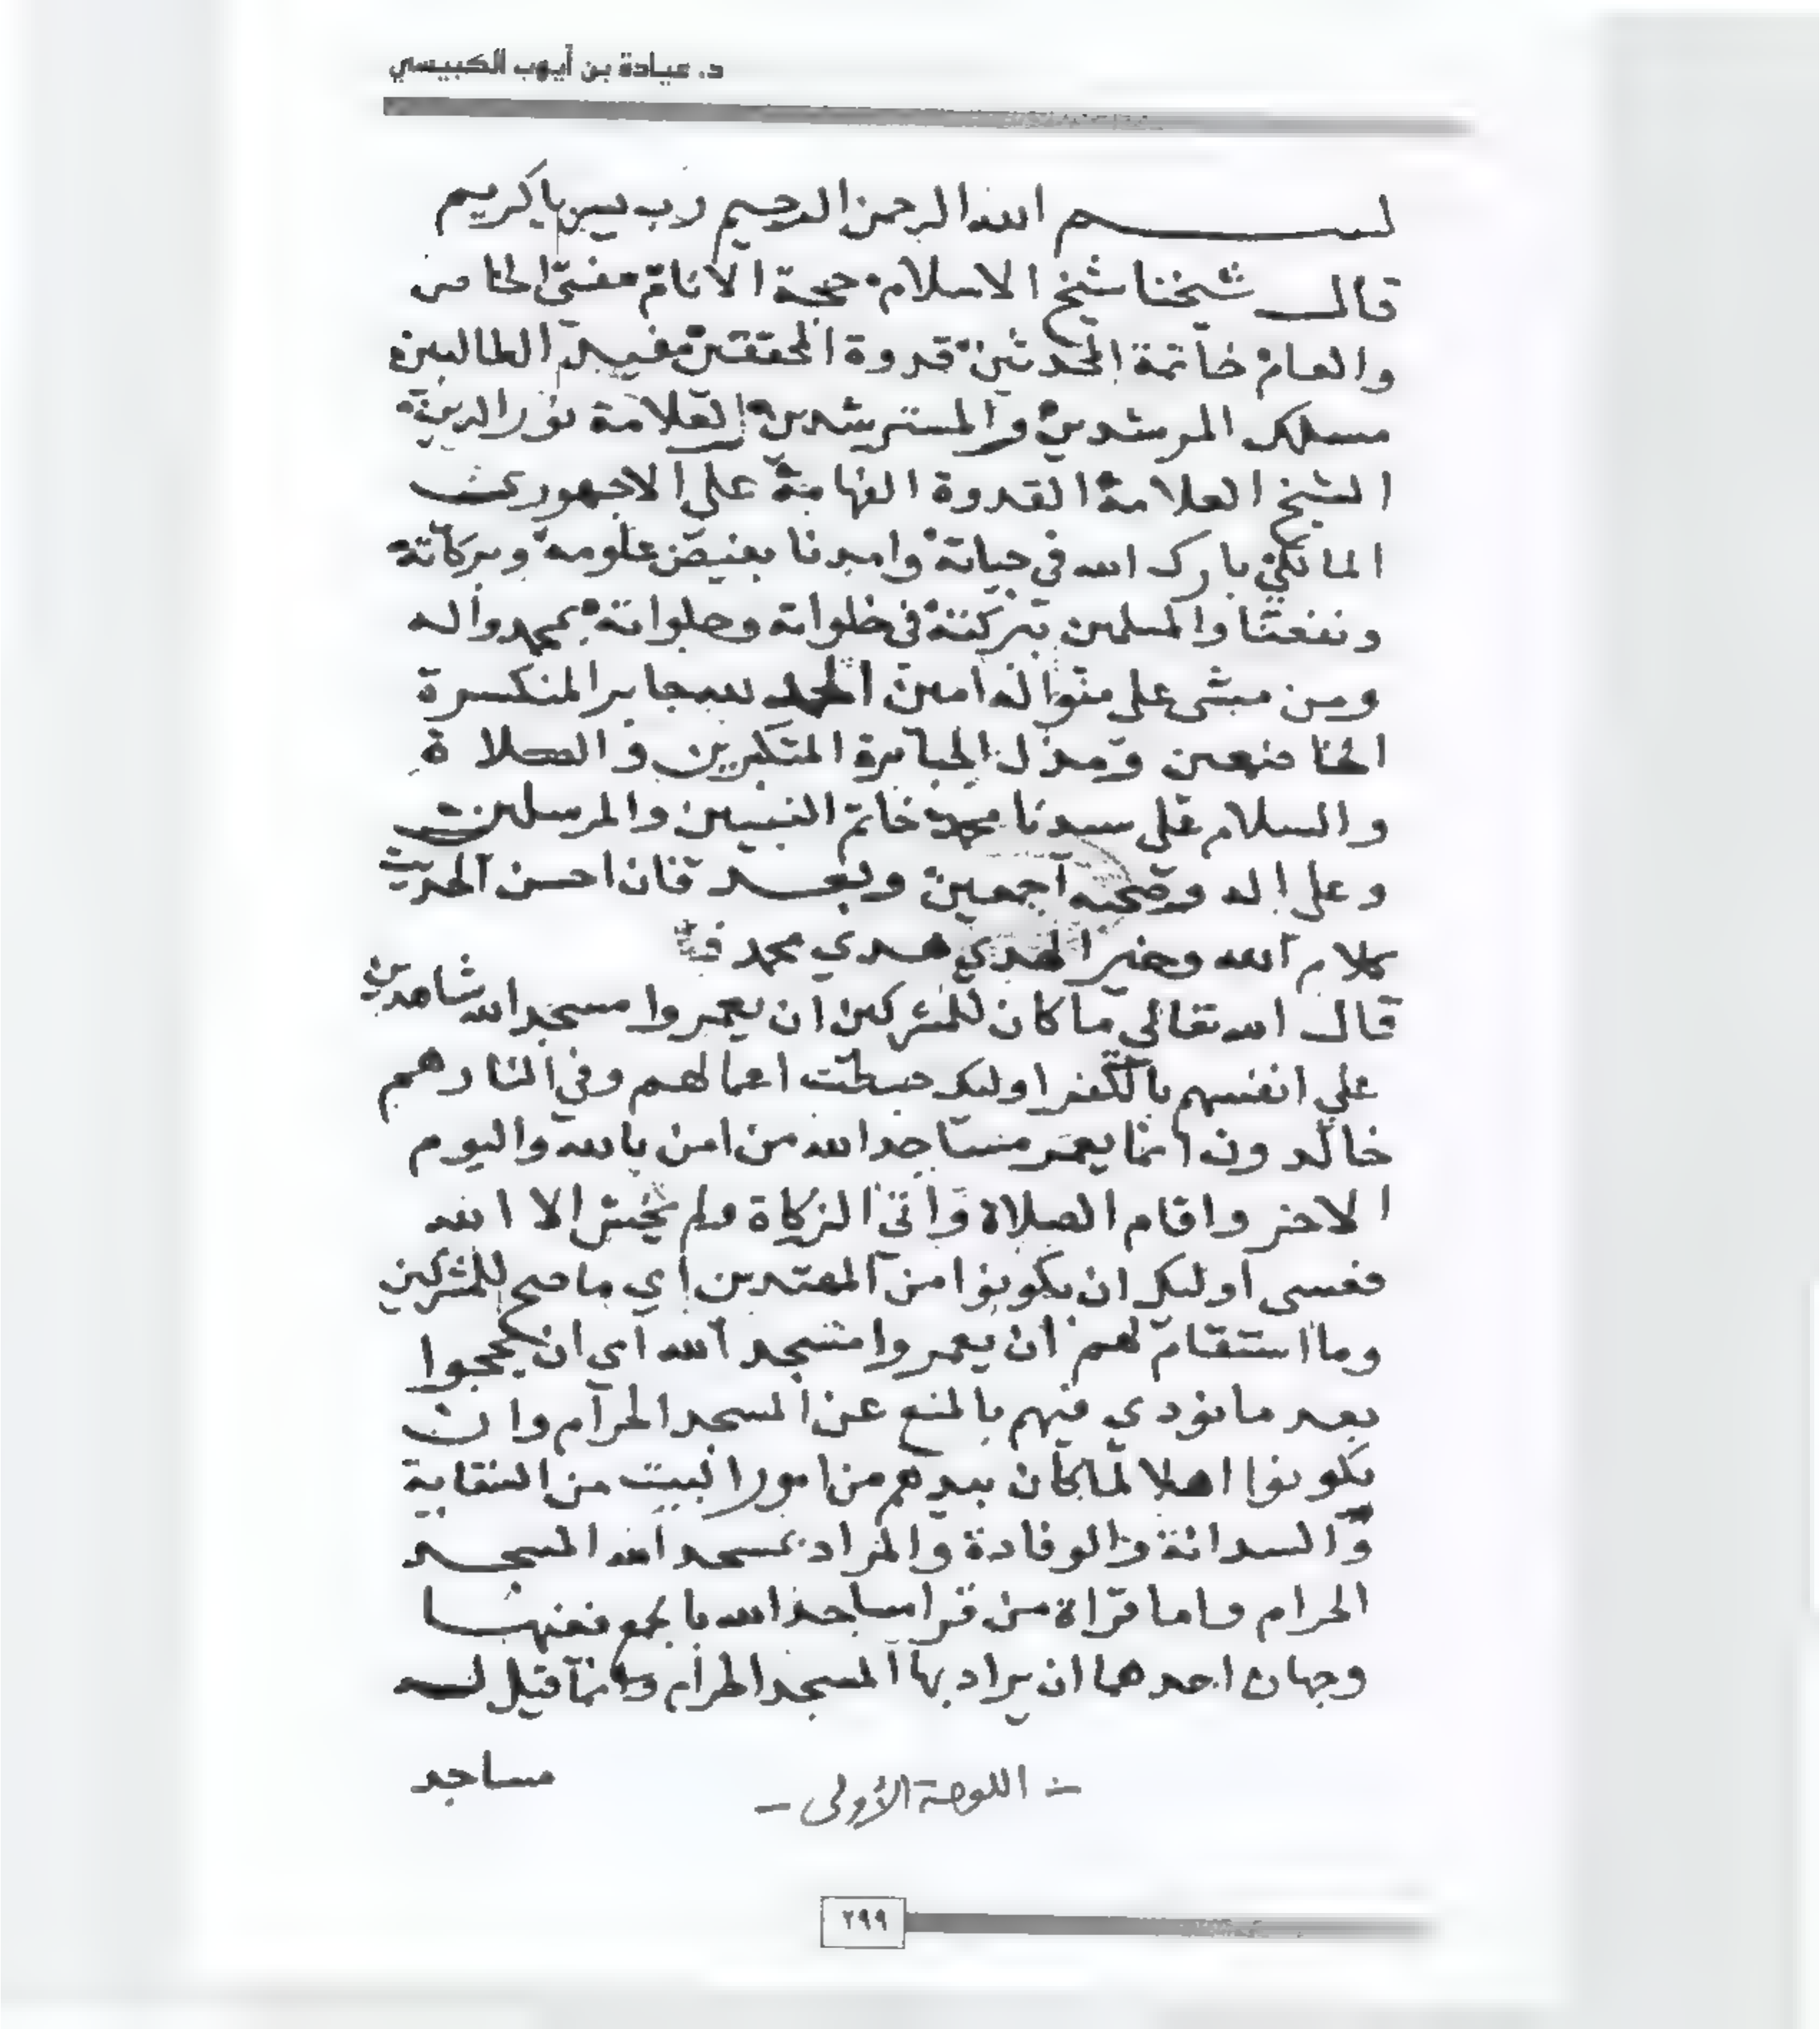 د. عيادة بن أيوب الكبيسي
بسم الله الرحمن الرحيم رب يسر ياكريم
قال شيخنا شيخ الاسلام حجة الانام مفتي الخاص
والعام خاتمة المحدثين قدوة المحققين مفيد الطالبين
مسلك المرشدين والمسترشدين العلامة نور الدين
الشيخ العلامة القدوة الفهامة علي الاجهوري
المالكي بارك الله في حياته وامدنا بفيض علومه وبركاته
ونفعنا والمسلمين ببركته في خلواته وجلواته بمحمد واله
ومن مشى على منواله امين الحمد لله جابر المنكسرة
الخاضعين ومذل الجبابرة المتكبرين والصلاة
والسلام على سيدنا محمد خاتم النبيين والمرسلين
وعلى اله وصحبه اجمعين وبعد فان احسن الحديث
كلام الله وخير الهدي هدي محمد
قال الله تعالي ما كان للمشركين ان يعمروا مسجد الله شاهدين
علي انفسهم بالكفر اوليك حبطت اعمالهم وفي النار هم
خالدون انما يعمر مساجد الله من امن بالله واليوم
الاخر واقام الصلاة واتى الزكاة ولم يخش الا الله
فعسى اوليك ان يكونوا من المهتدين اي ما صح للمشركين
وما استقام لهم ان يعمروا مسجد الله اي ان يحجوا
بعد ما نودي فيهم بالمنع عن المسجد الحرام وان
يكونوا اهلا لما كان بيدهم من امور البيت من السقاية
والسدانة والوفادة والمراد بمسجد الله المسجد
الحرام واما قراة من قرا مساجد الله بالجمع ففيها
وجهان احدهما ان يراد بها المسجد الحرام وانما قيل له
مساجد
- اللوحة الأولى -
٢٩٩